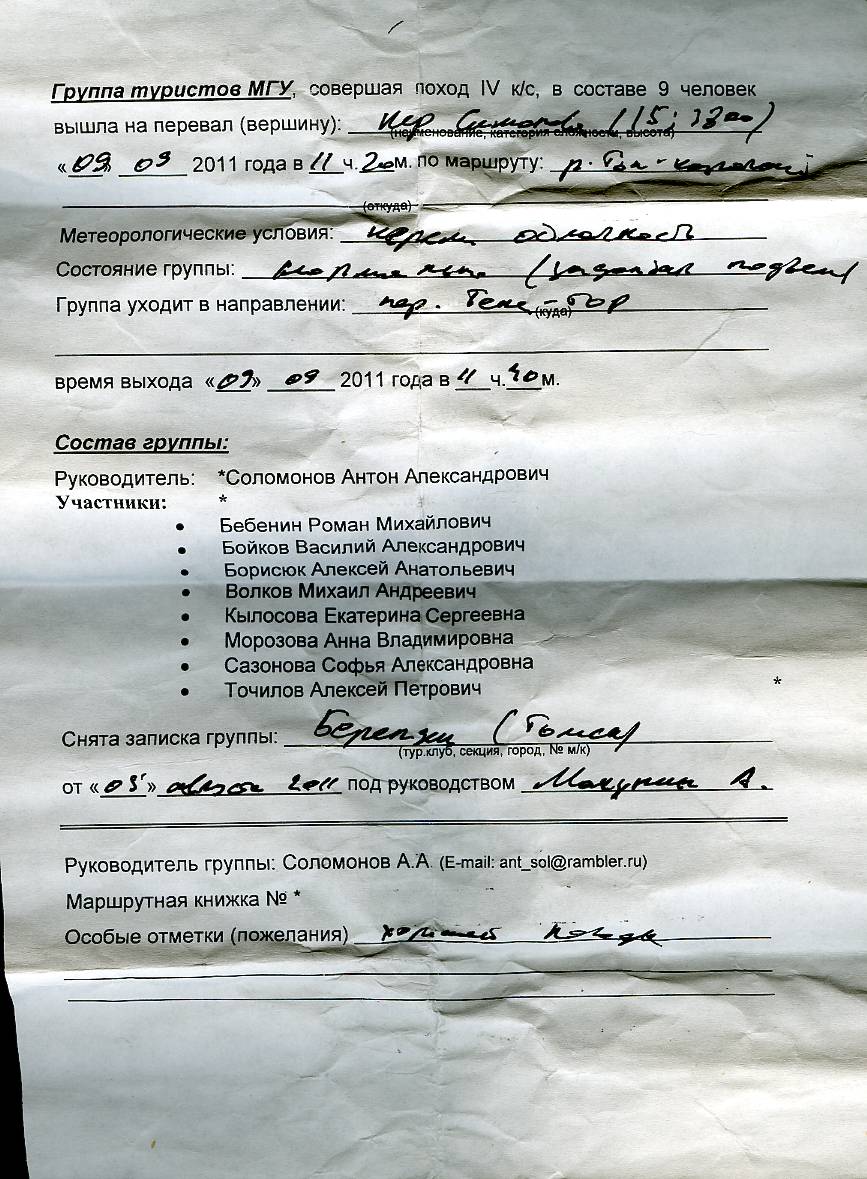 Группа туристов МГУ, совершая поход IV к/с, в составе 9 человек
вышла на перевал (вершину): пер
(наименование, категория сложности, высота)
«09» 09 2011 года в 11 ч. 20 м. по маршруту: р.
(откуда)
Метеорологические условия: облачность
Состояние группы:
Группа уходит в направлении: пер.
(куда)
время выхода «09» 09 2011 года в 11 ч. 40 м.
Состав группы:
Руководитель: *Соломонов Антон Александрович
Участники: *
• Бебенин Роман Михайлович
• Бойков Василий Александрович
• Борисюк Алексей Анатольевич
• Волков Михаил Андреевич
• Кылосова Екатерина Сергеевна
• Морозова Анна Владимировна
• Сазонова Софья Александровна
• Точилов Алексей Петрович *
Снята записка группы:
(тур.клуб, секция, город, № м/к)
от «05» августа 2011 под руководством Макунин А.
Руководитель группы: Соломонов А.А. (E-mail: ant_sol@rambler.ru)
Маршрутная книжка № *
Особые отметки (пожелания) хорошей погоды